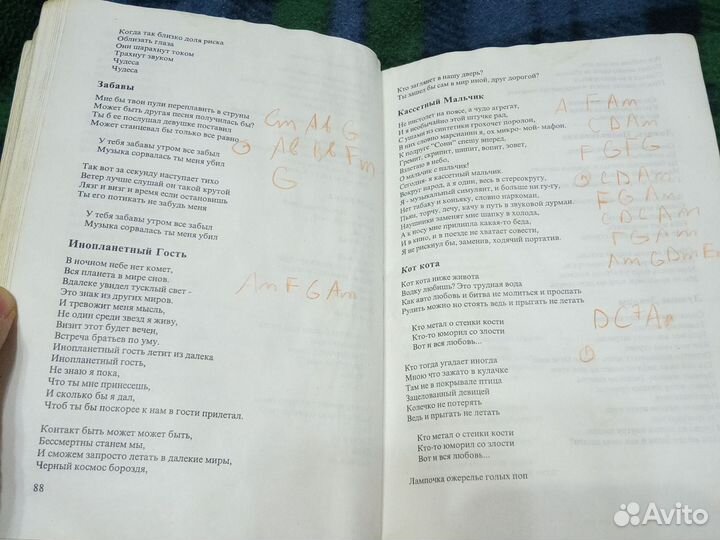 Когда так близко доля риска
Облизать глаза
Они шарахнут током
Трахнут звуком
Чудеса
Чудеса
Забавы
Мне бы твои пули переплавить в струны
Может быть другая песня получилась бы?
Ты б ее послушал девушке поставил
Может станцевал бы только все равно
У тебя забавы утром все забыл
Музыка сорвалась ты меня убил
Cm Ab G
Ab Fm
G
Так вот за секунду наступает тихо
Ветер лучше слушай он такой крутой
Лязг и визг и время если остановишь
Ты его потикать не забудь меня
У тебя забавы утром все забыл
Музыка сорвалась ты меня убил
Инопланетный Гость
В ночном небе нет комет,
Вся планета в мире снов.
Вдалеке увидел тусклый свет -
Это знак из других миров.
И тревожит меня мысль,
Не один среди звезд я живу,
Визит этот будет вечен,
Встреча братьев по уму.
Инопланетный гость летит из далека
Инопланетный гость,
Не знаю я пока,
Что ты мне принесешь,
И сколько бы я дал,
Чтоб ты бы поскорее к нам в гости прилетал.
Am F G Am
Контакт быть может может быть,
Бессмертны станем мы,
И сможем запросто летать в далекие миры,
Черный космос бороздя,
88
Кто заглянет в нашу дверь?
Ты зашел бы сам в мир иной, друг дорогой?
Кассетный Мальчик
Не пистолет на поясе, а чудо агрегат,
И я необычайно этой штучке рад,
С ушами из синтетики грохочет поролон,
В них словно марсианин я, ох микро- мой- мафон.
К подруге "Сони" спешу вперед,
Гремит, скрипит, шипит, вопит, зовет,
Взлетаю в небо,
О мальчик с пальчик!
Сегодня- я кассетный мальчик.
Вокруг народ, а я один, весь в стереокругу,
Я - музыкальный симулянт, и больше ни гу-гу.
Нет табаку и коньяку, словно наркоман,
Пьян, торчу, лечу, качу в путь в звуковой дурман.
Наушники заменят мне шапку в холода,
А к носу мне прилипла какая-то беда,
И в кино, и в поезде не хватает совести,
Я не рискнул бы, заменив, ходячий портатив.
A F Am
C D Am
F G F G
C D Am
F G Am
C D C Am
F G Am
Am G Dm Em
Кот кота
Кот кота ниже живота
Водку любишь? Это трудная вода
Как авто любовь и битва не молиться и проспать
Рулить можно но стоять ведь и прыгать не летать
Кто метал о стенки кости
Кто-то юморил со злости
Вот и вся любовь...
Кто тогда угадает иногда
Мною что зажато в кулачке
Там не в покрывале птица
Зацелованный девицей
Колечко не потерять
Ведь и прыгать не летать
Кто метал о стенки кости
Кто-то юморил со злости
Вот и вся любовь...
Лампочка ожерелье голых поп
Avito